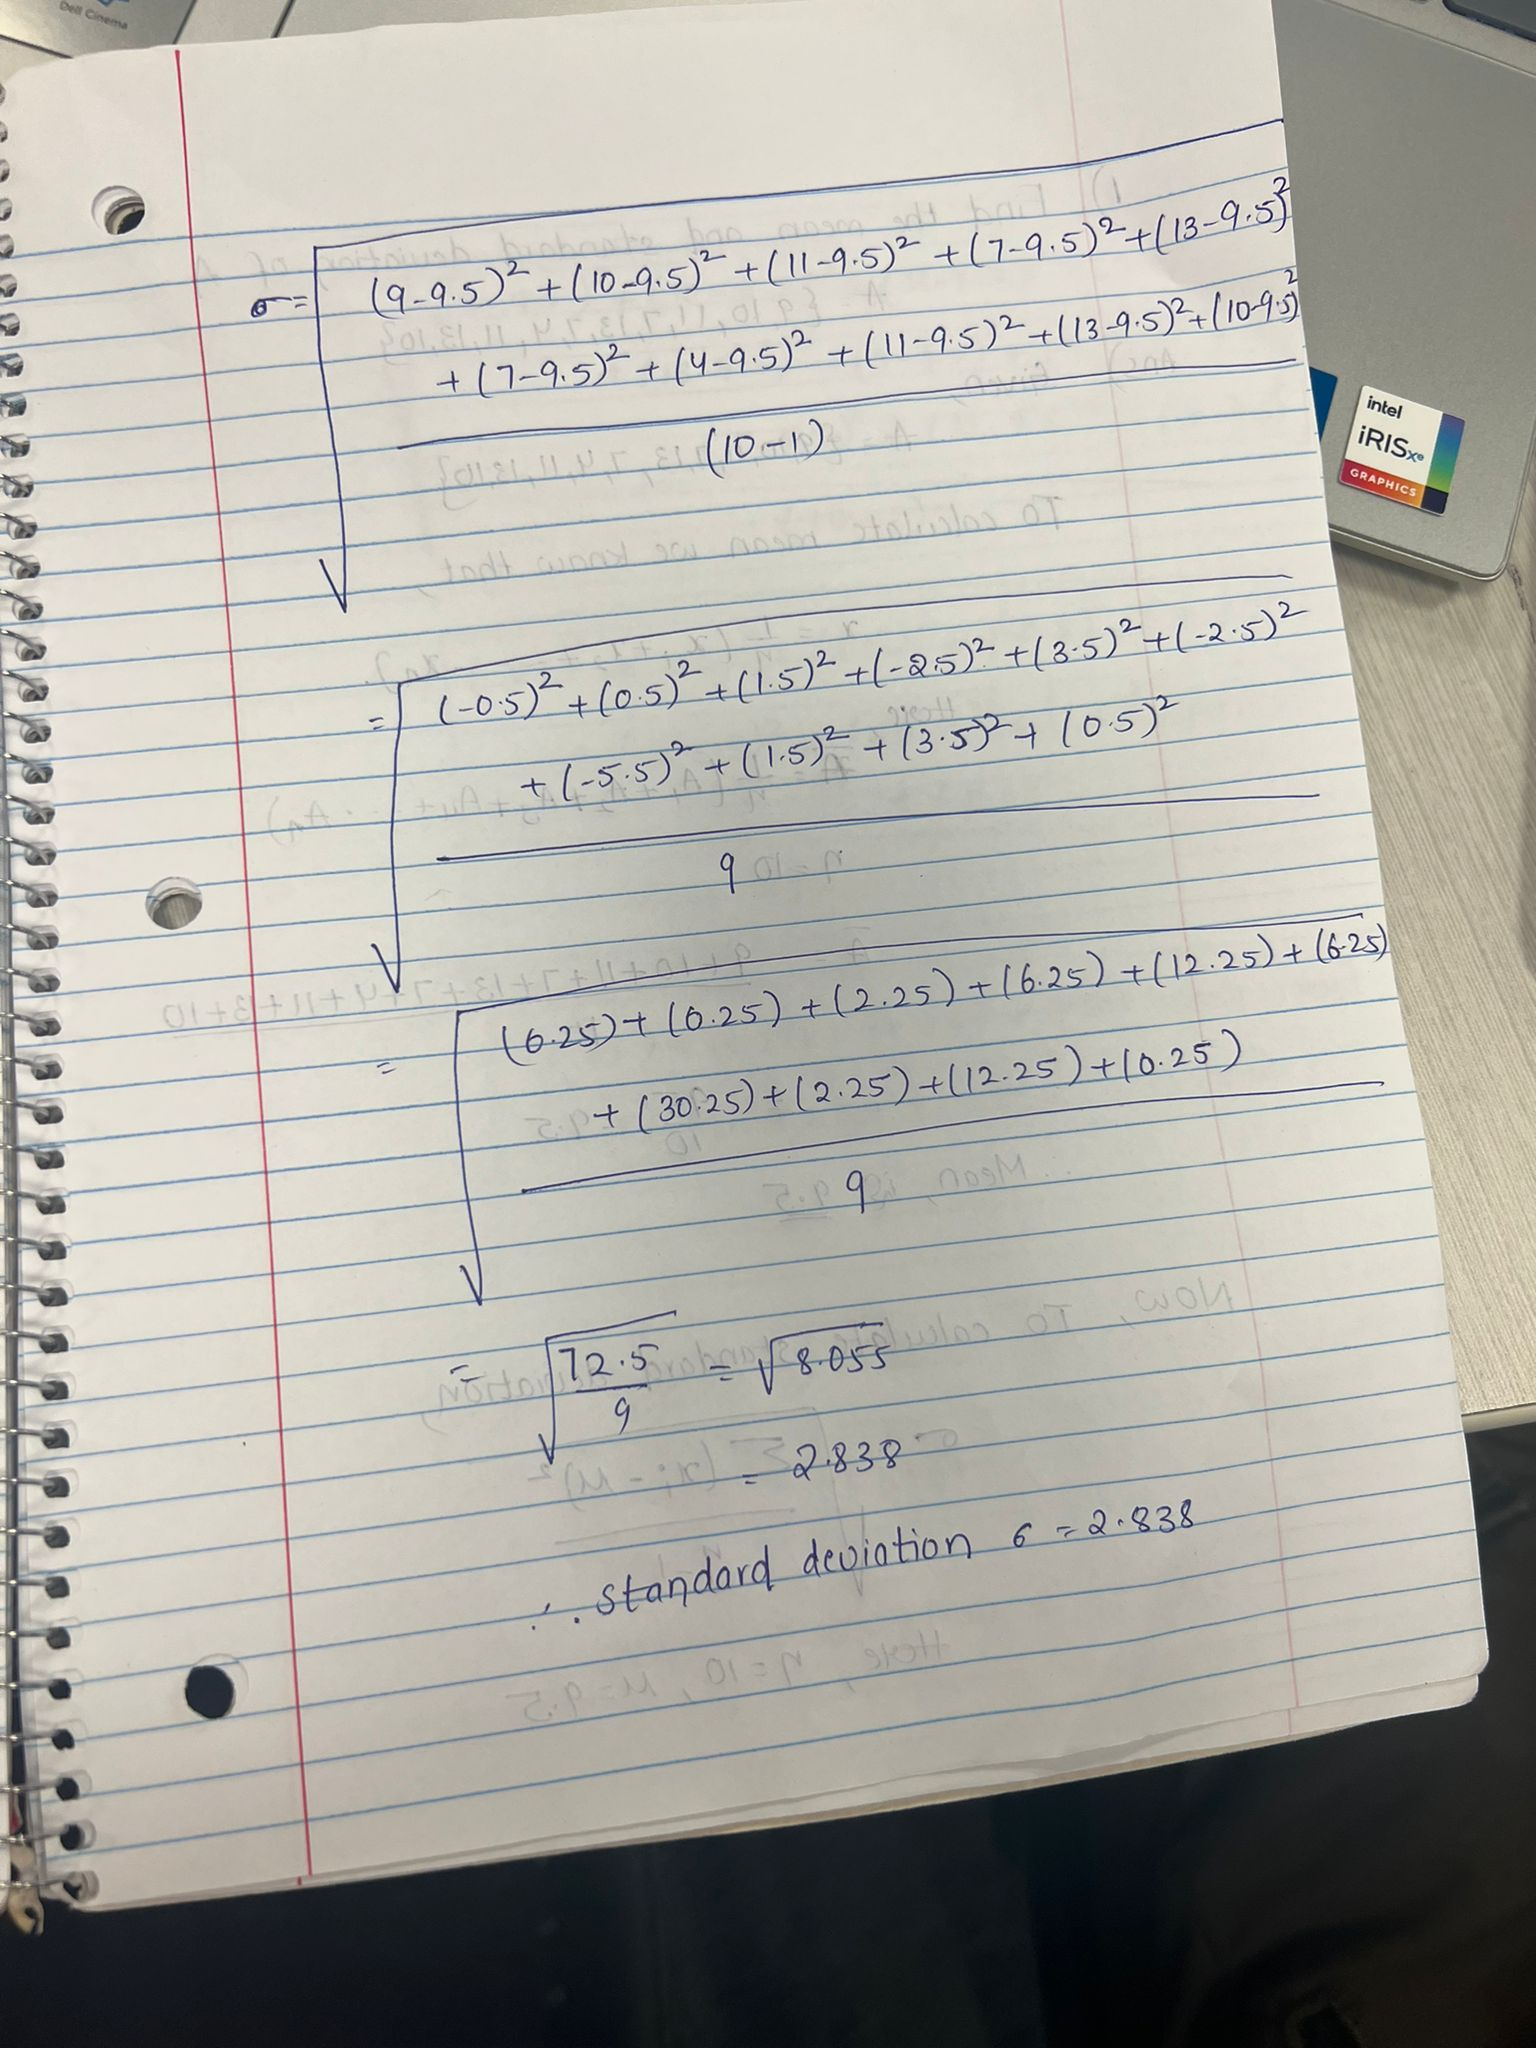 Dell Cinema
σ = √ (9-9.5)² + (10-9.5)² + (11-9.5)² + (7-9.5)² + (13-9.5)²
+ (7-9.5)² + (4-9.5)² + (11-9.5)² + (13-9.5)² + (10-9.5)²
(10-1)
= √ (-0.5)² + (0.5)² + (1.5)² + (-2.5)² + (3.5)² + (-2.5)²
+ (-5.5)² + (1.5)² + (3.5)² + (0.5)²
9
= √ (6.25) + (0.25) + (2.25) + (6.25) + (12.25) + (6.25)
+ (30.25) + (2.25) + (12.25) + (0.25)
9
= √ 72.5 / 9 = √ 8.055
= 2.838
∴ standard deviation σ = 2.838
intel
iRISxe
GRAPHICS